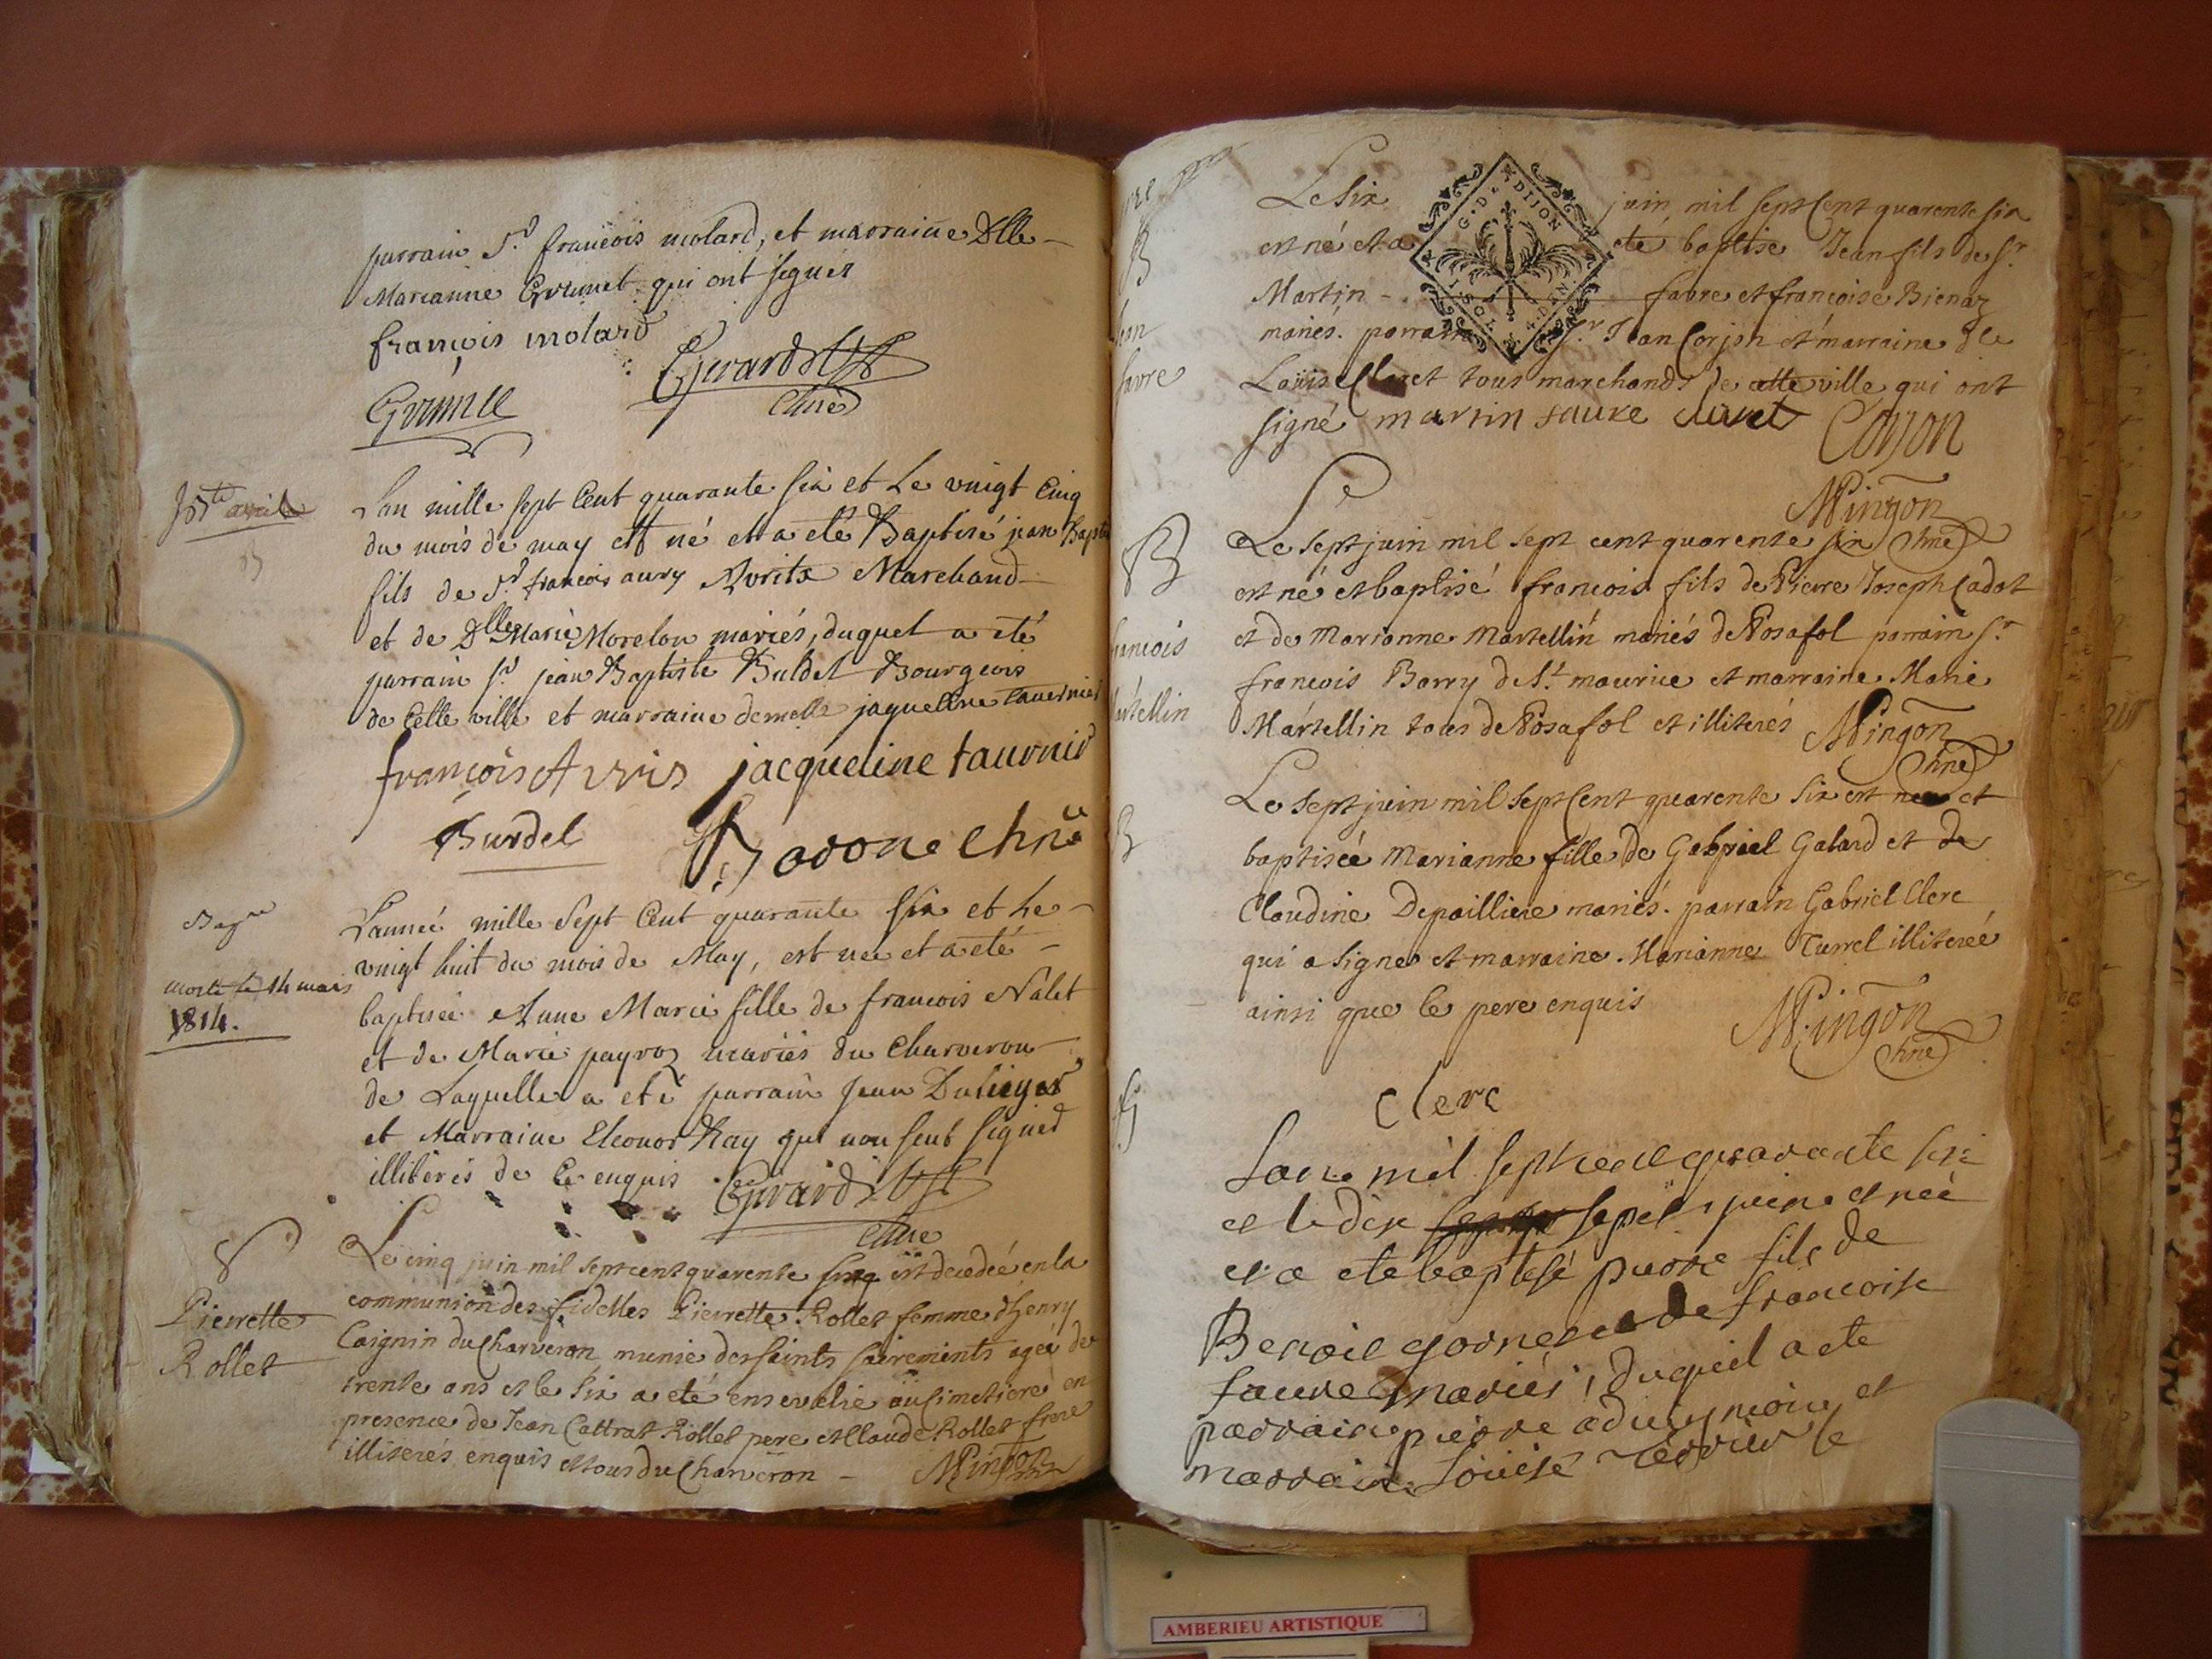 parrain Sr francois molard, et marraine Dlle
Marianne qui ont signer
françois molard
Girard Vst
Curé
L'an mille sept Cent quarante six et Le vingt Cinq
du mois de may est né et a eté Baptisé jean Baptiste
fils de Sr francois avry Marchand
et de Dlle Marie Morelon mariés, duquel a eté
parrain Sr jean Baptiste Bourgeois
de Cette ville et marraine demelle jaqueline tavernier
françois jacqueline taurnie
Burdel chne
morte le 14 mars
1814.
L'anneé mille Sept Cent quarante six et Le
vingt huit du mois de May, est neé et a eté
baptiseé Anne Marie fille de francois Nalet
et de Marie payroz mariés du Charveron
de Laquelle a eté parrain Jean
et Marraine Eleonor Ray qui non seut signer
illiterés de Ce enquis Girard Vst
Curé
Pierrette
Rollet
Le cinq juin mil sept cent quarente est decedeé en la
communion des fidelles Pierrette Rollet femme d'henry
Caignin du Charveron munie des saints sacrements ageé de
trente ans et le six a eté ensevelie au simetiere en
presence de Jean Cattrat Rollet pere et Claude Rollet frere
illiterés enquis et tous du Charveron Mingon
G. D. DIJON
Le six juin mil sept Cent quarente six
est né et a eté baptisé Jean fils de Sr
Martin favre et francoise Bienaz
mariés. parrain Sr Jean Corjon et marraine Dle
Louise Claret tous marchands de cette ville qui ont
signé martin faure claret Corjon
Mingon
chne
Le sept juin mil sept cent quarente six
est né et baptisé francois fils de Pierre Joseph Cadot
et de Marianne Martellin mariés de Posafol parrain Sr
francois Barry de St maurice et marraine Marie
Martellin tous de Posafol et illiterés Mingon
chne
Jean
favre
francois
Martellin
B
Le sept juin mil sept Cent quarente six est neé et
baptiseé Marianne fille de Gabriel Galard et de
Claudine Depailliere mariés. parrain Gabriel Clerc
qui a signé et marraine Marianne Turrel illitereé
ainsi que le pere enquis Mingon
chne
Clerc
Lan mil sept cent quarante six
et le dix sept juin et neé
et a ete baptesé pierre fils de
Benoit gornet et de francoise
faure mariés, duquel a ete
parrain pierre et
marraine Louise
AMBERIEU ARTISTIQUE